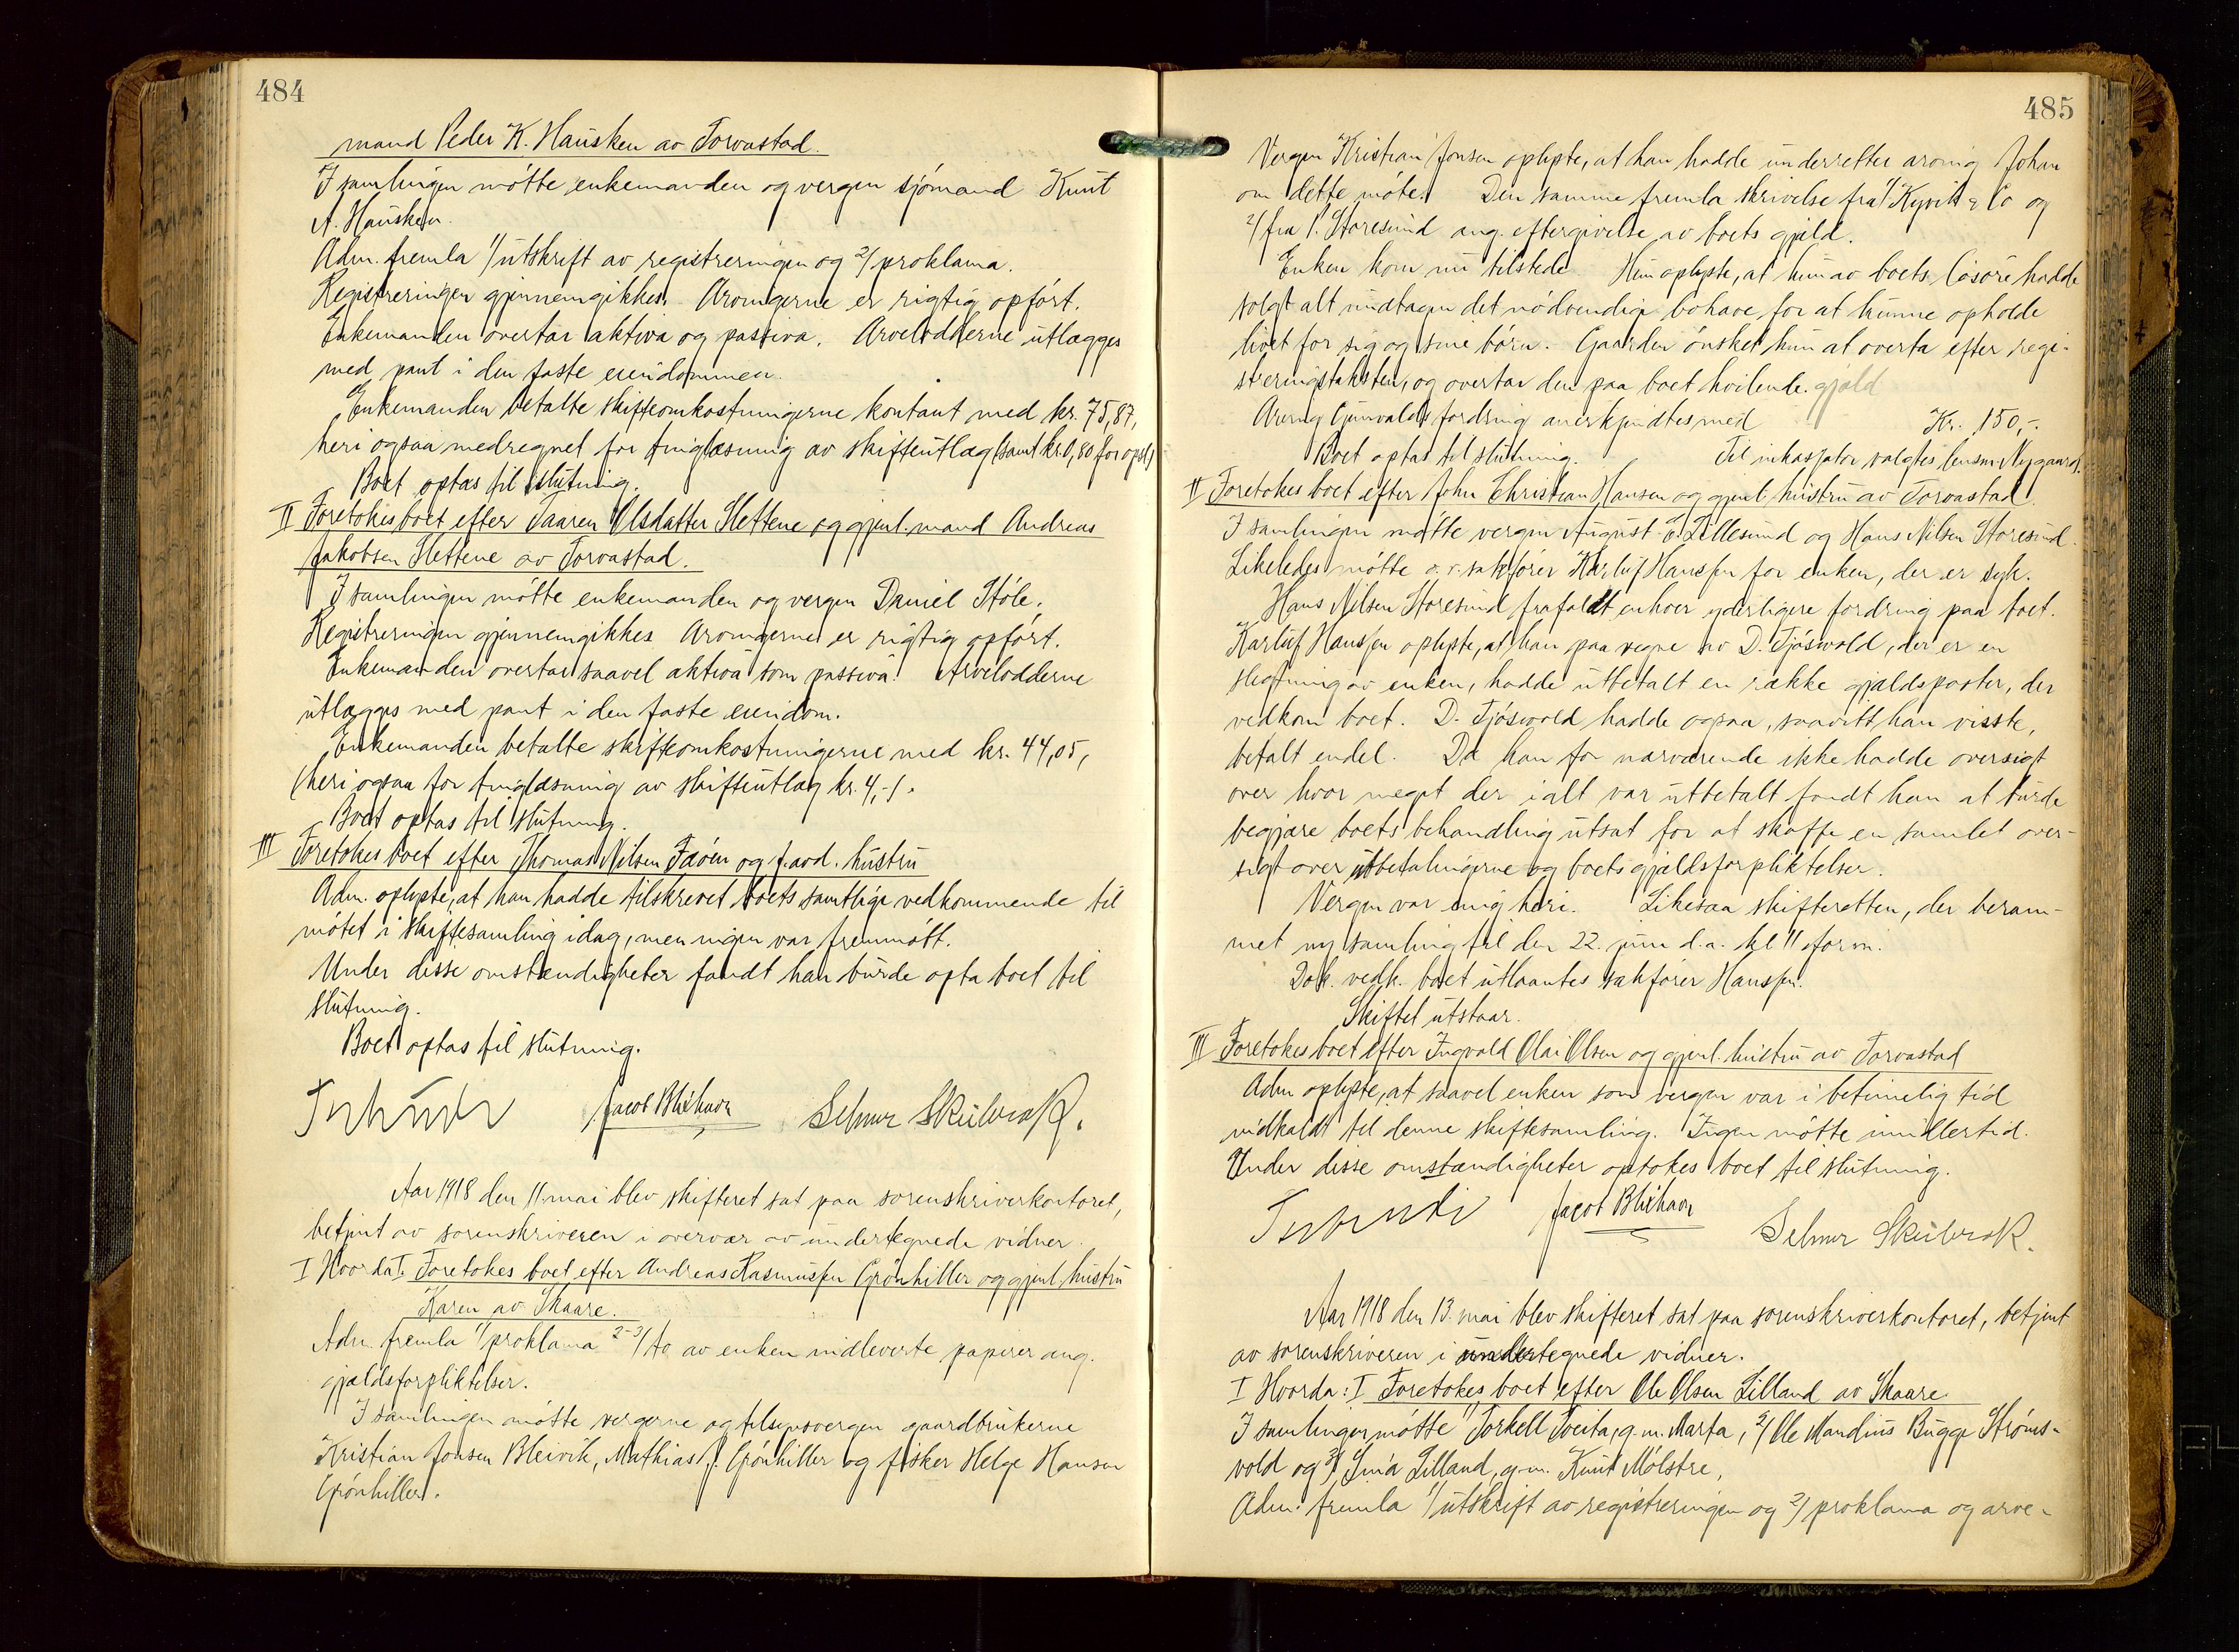 484
mand Peder K. Hausken av Torvastad.
I samlingen møtte enkemanden og vergen sjømand Knut
A. Hausken.
Adm. fremla 1/ utskrift av registreringen og 2/ proklama.
Registreringen gjennemgikkes. Arvingerne er rigtig opført.
Enkemanden overtar aktiva og passiva. Arvelodderne utlægges
med pant i den faste eiendommen.
Enkemanden betalte skifteomkostningerne kontant med kr. 75,87,
heri ogsaa medregnet for tinglæsning av skifteutlæg (samt kr. 0,80 for opsl.)
Boet optas til slutning.
II Foretokes boet efter Taaren Olsdatter Slettene og gjenl. mand Andreas
Jakobsen Slettene av Torvastad.
I samlingen møtte enkemanden og vergen Daniel Støle.
Registreringen gjennemgikkes. Arvingerne er rigtig opført.
Enkemanden overtar saavel aktiva som passiva. Arvelodderne
utlægges med pant i den faste eiendom.
Enkemanden betalte skifteomkostningerne med kr. 44,05,
(heri ogsaa for tinglæsning av skifteutlæg kr. 4,-).
Boet optas til slutning.
III Foretokes boet efter Thomas Nilsen Fæøen og f. avd. hustru
Adm. oplyste, at han hadde tilskrevet boets samtlige vedkommende til
møtet i skiftesamling idag, men ingen var fremmøtt.
Under disse omstændigheter fandt han burde opta boet til
slutning.
Boet optas til slutning.
Jacob Blikhavn Selmer Skulevæk.
Aar 1918 den 11. mai blev skifteret sat paa sorenskriverkontoret,
betjent av sorenskriveren i overvær av undertegnede vidner.
I Hvorda I. Foretokes boet efter Andreas Rasmussen Grønhiller og gjenl. hustru
Karen av Skaare.
Adm. fremla 1/ proklama 2-3/ to av enken indleverte papirer ang.
gjældsforpliktelser.
I samlingen møtte vergerne og tilsynsvergen gaardbrukerne
Kristian Jonsen Bleivik, Mathias J. Grønhiller og fisker Helge Hansen
Grønhiller.
485
Vergen Kristian Jonsen oplyste, at han hadde underrettet arving Johan
om dette møte. Den samme fremla skrivelse fra 1/ Kyvik & Co og
2/ fra P. Storesund ang. eftergivelse av boets gjæld.
Enken kom nu tilstede. Hun oplyste, at hun av boets løsøre hadde
solgt alt undtagen det nødvendige bohave for at kunne opholde
livet for sig og sine børn. Gaarden ønsket hun at overta efter regi-
streringstaksten, og overtar den paa boet hvilende gjæld
Arving Gunvalds fordring anerkjendtes med Kr. 150,-.
Boet optas til slutning. Til inkassator valgtes lensm. Nygaard.
II Foretokes boet efter John Christian Hansen og gjenl. hustru av Torvastad.
I samlingen møtte vergen August E. Lillesund og Hans Nilsen Storesund.
Likeledes møtte o.r. sakfører Karluf Hanssen for enken, der er syk.
Hans Nilsen Storesund frafaldt enhver yderligere fordring paa boet.
Karluf Hanssen oplyste, at han paa vegne av D. Tjøswold, der er en
slegtning av enken, hadde utbetalt en række gjældsposter, der
vedkom boet. D. Tjøswold hadde ogsaa, saavitt han visste,
betalt endel. Da han for nærværende ikke hadde oversigt
over hvor meget der ialt var utbetalt fandt han at burde
begjære boets behandling utsat for at skaffe en samlet over-
sigt over utbetalingerne og boets gjældsforpliktelser.
Vergen var enig heri. Likesaa skifteretten, der beram-
met ny samling til den 22. juni d.a. kl 11 form.
Dok. vedk. boet utlaantes sakfører Hanssen.
Skiftet utstaar.
III Foretokes boet efter Ingvald Olai Olsen og gjenl. hustru av Torvastad
Adm oplyste, at saavel enken som vergen var i betimelig tid
indkaldt til denne skiftesamling. Ingen møtte imidlertid.
Under disse omstændigheter optokes boet til slutning.
Jacob Blikhavn Selmer Skulevæk.
Aar 1918 den 13. mai blev skifteret sat paa sorenskriverkontoret, betjent
av sorenskriveren i undertegnede vidner.
I Hvorda: I Foretokes boet efter Ole Olsen Lilland av Skaare
I samlingen møtte 1/ Torkell Tveita, g.m. Marta, 2/ Ole Mandius Bugge Strøms-
vold og 3/ Sina Lilland, g.m. Knut Mølstre,
Adm. fremla 1/ utskrift av registreringen og 2/ proklama og arve-